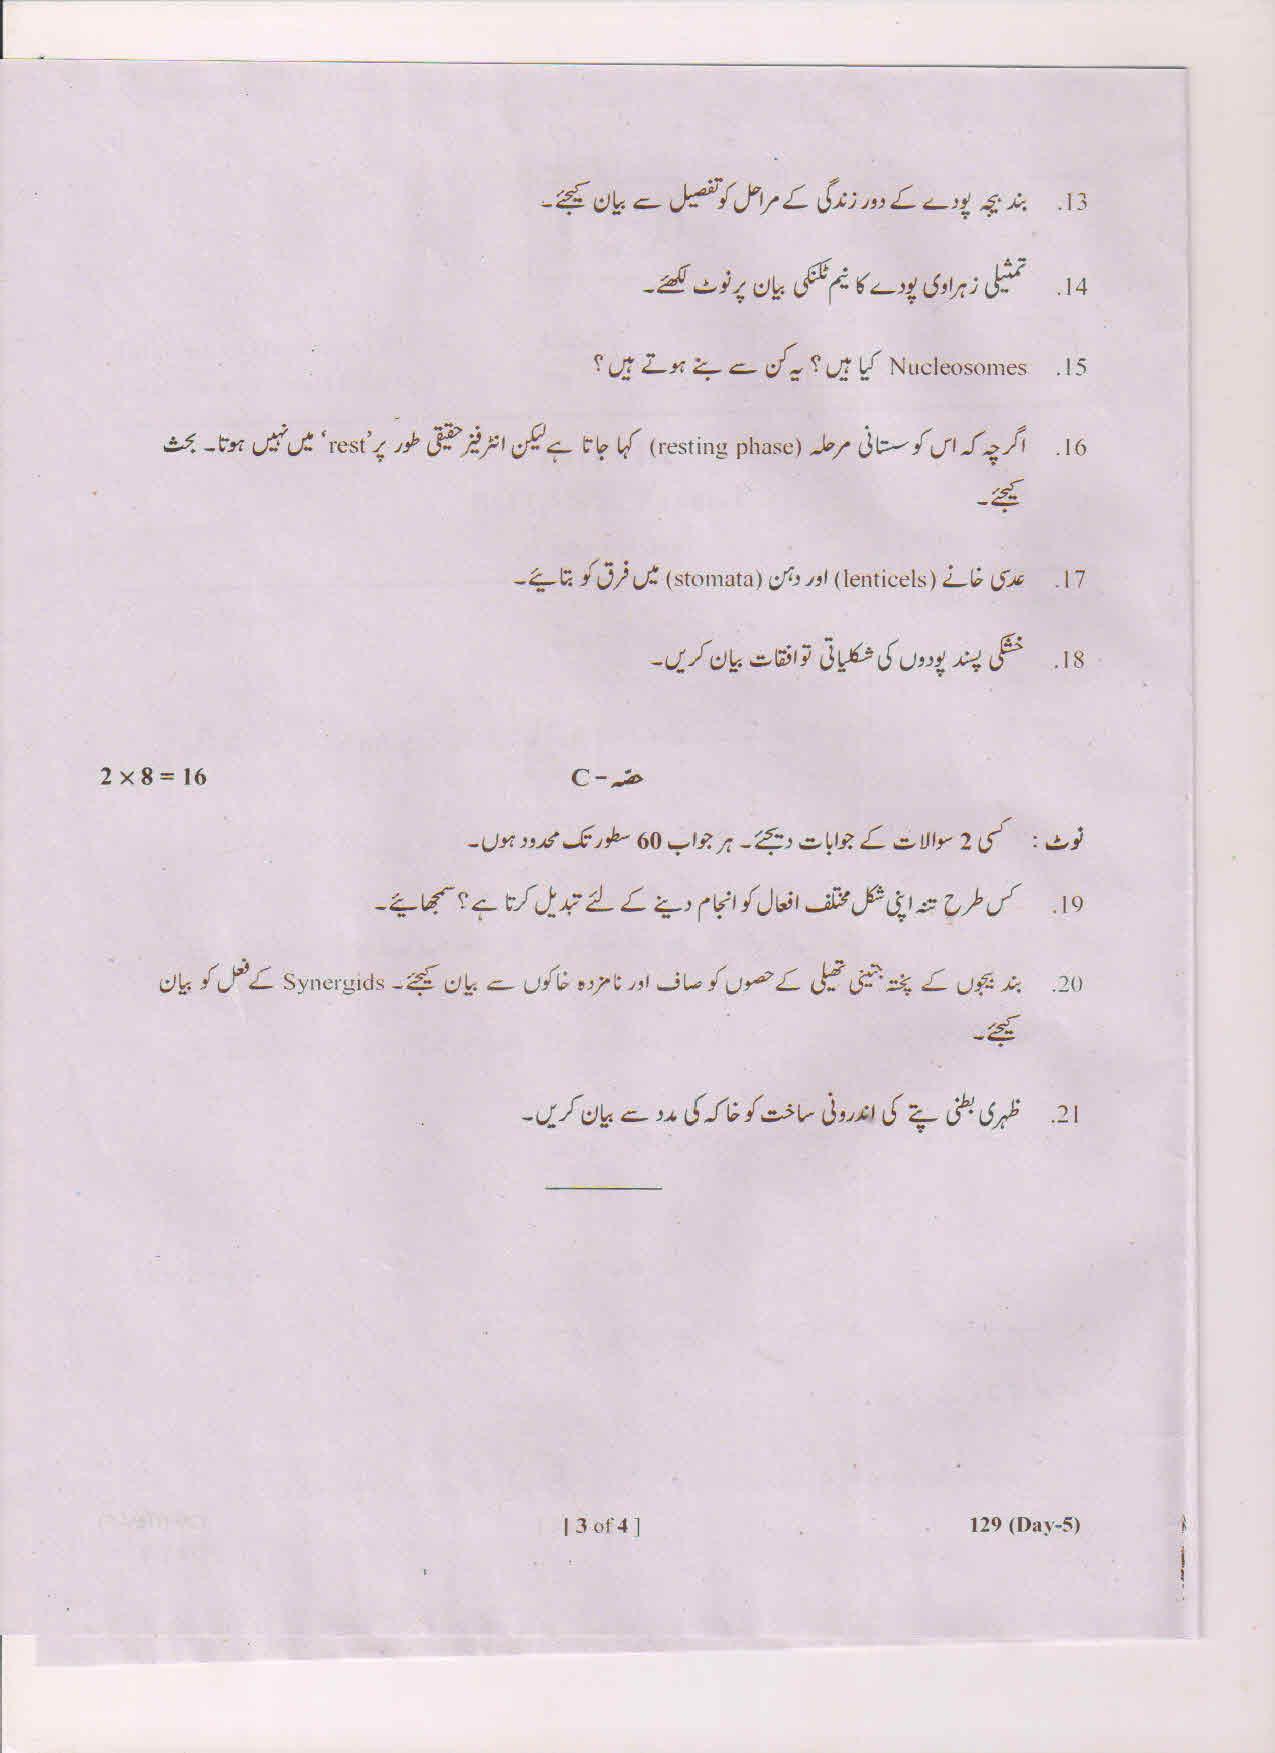 13. بند بیجہ پودے کے دور زندگی کے مراحل کو تفصیل سے بیان کیجئے۔
14. تمثیلی زہراوی پودے کا نیم ٹلنکی بیان پر نوٹ لکھئے۔
15. Nucleosomes کیا ہیں؟ یہ کن سے بنے ہوتے ہیں؟
16. اگرچہ کہ اس کو ستانی مرحلہ (resting phase) کہا جاتا ہے لیکن انٹرفیز حقیقی طور پر ’rest‘ میں نہیں ہوتا۔ بحث
کیجئے۔
17. عدسی خانے (lenticels) اور دہن (stomata) میں فرق کو بتایئے۔
18. خشکی پسند پودوں کی شکلیاتی توافقات بیان کریں۔
حصّہ – C 2 × 8 = 16
نوٹ : کسی 2 سوالات کے جوابات دیجئے۔ ہر جواب 60 سطور تک محدود ہوں۔
19. کس طرح تنہ اپنی شکل مختلف افعال کو انجام دینے کے لئے تبدیل کرتا ہے؟ سمجھایئے۔
20. بند بیجوں کے پختہ جنینی تھیلی کے حصوں کو صاف اور نامزدہ خاکوں سے بیان کیجئے۔ Synergids کے فعل کو بیان
کیجئے۔
21. ظہری بطنی پتے کی اندرونی ساخت کو خاکہ کی مدد سے بیان کریں۔
129 (Day-5) [ 3 of 4 ]